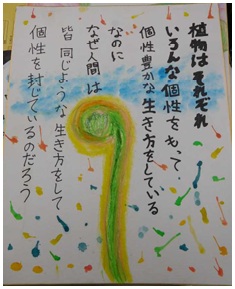 植物はそれぞれ
いろんな個性をもって、
個性豊かな生き方をしている
なのに
なぜ人間は
皆同じような生き方をして
個性を封じているのだろう